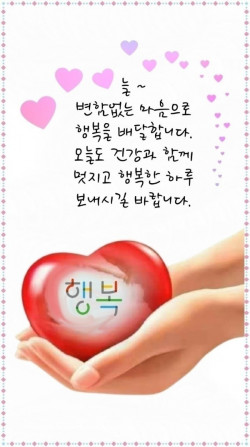 늘 ~
변함없는 마음으로
행복을 배달합니다.
오늘도 건강과 함께
멋지고 행복한 하루
보내시길 바랍니다.
행복